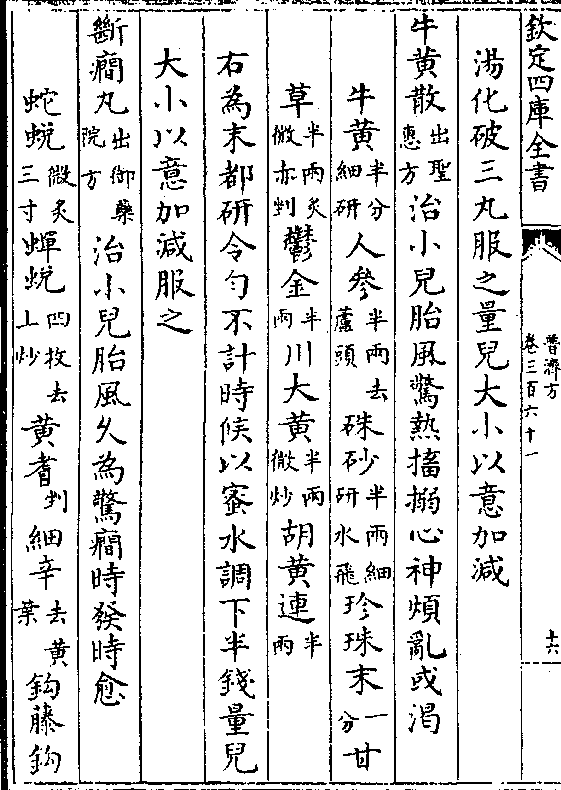 欽定四庫全書
普濟方
卷三百六十一
十六
湯化破三丸服之量兒大小以意加減
牛黄散出聖惠方治小兒胎風驚熱搐搦心神煩亂或渴
牛黄半分細研人參半兩去蘆頭硃砂半兩細研水飛珍珠末一分甘
草半兩炙微赤剉鬱金半兩川大黄半兩微炒胡黄連半兩
右為末都研令勻不計時候以蜜水調下半錢量兒
大小以意加減服之
斷癎丸出御藥院方治小兒胎風久為驚癎時發時愈
蛇蜕微炙三寸蟬蜕四枚去土炒黄耆剉細辛去黄葉鈎藤鈎